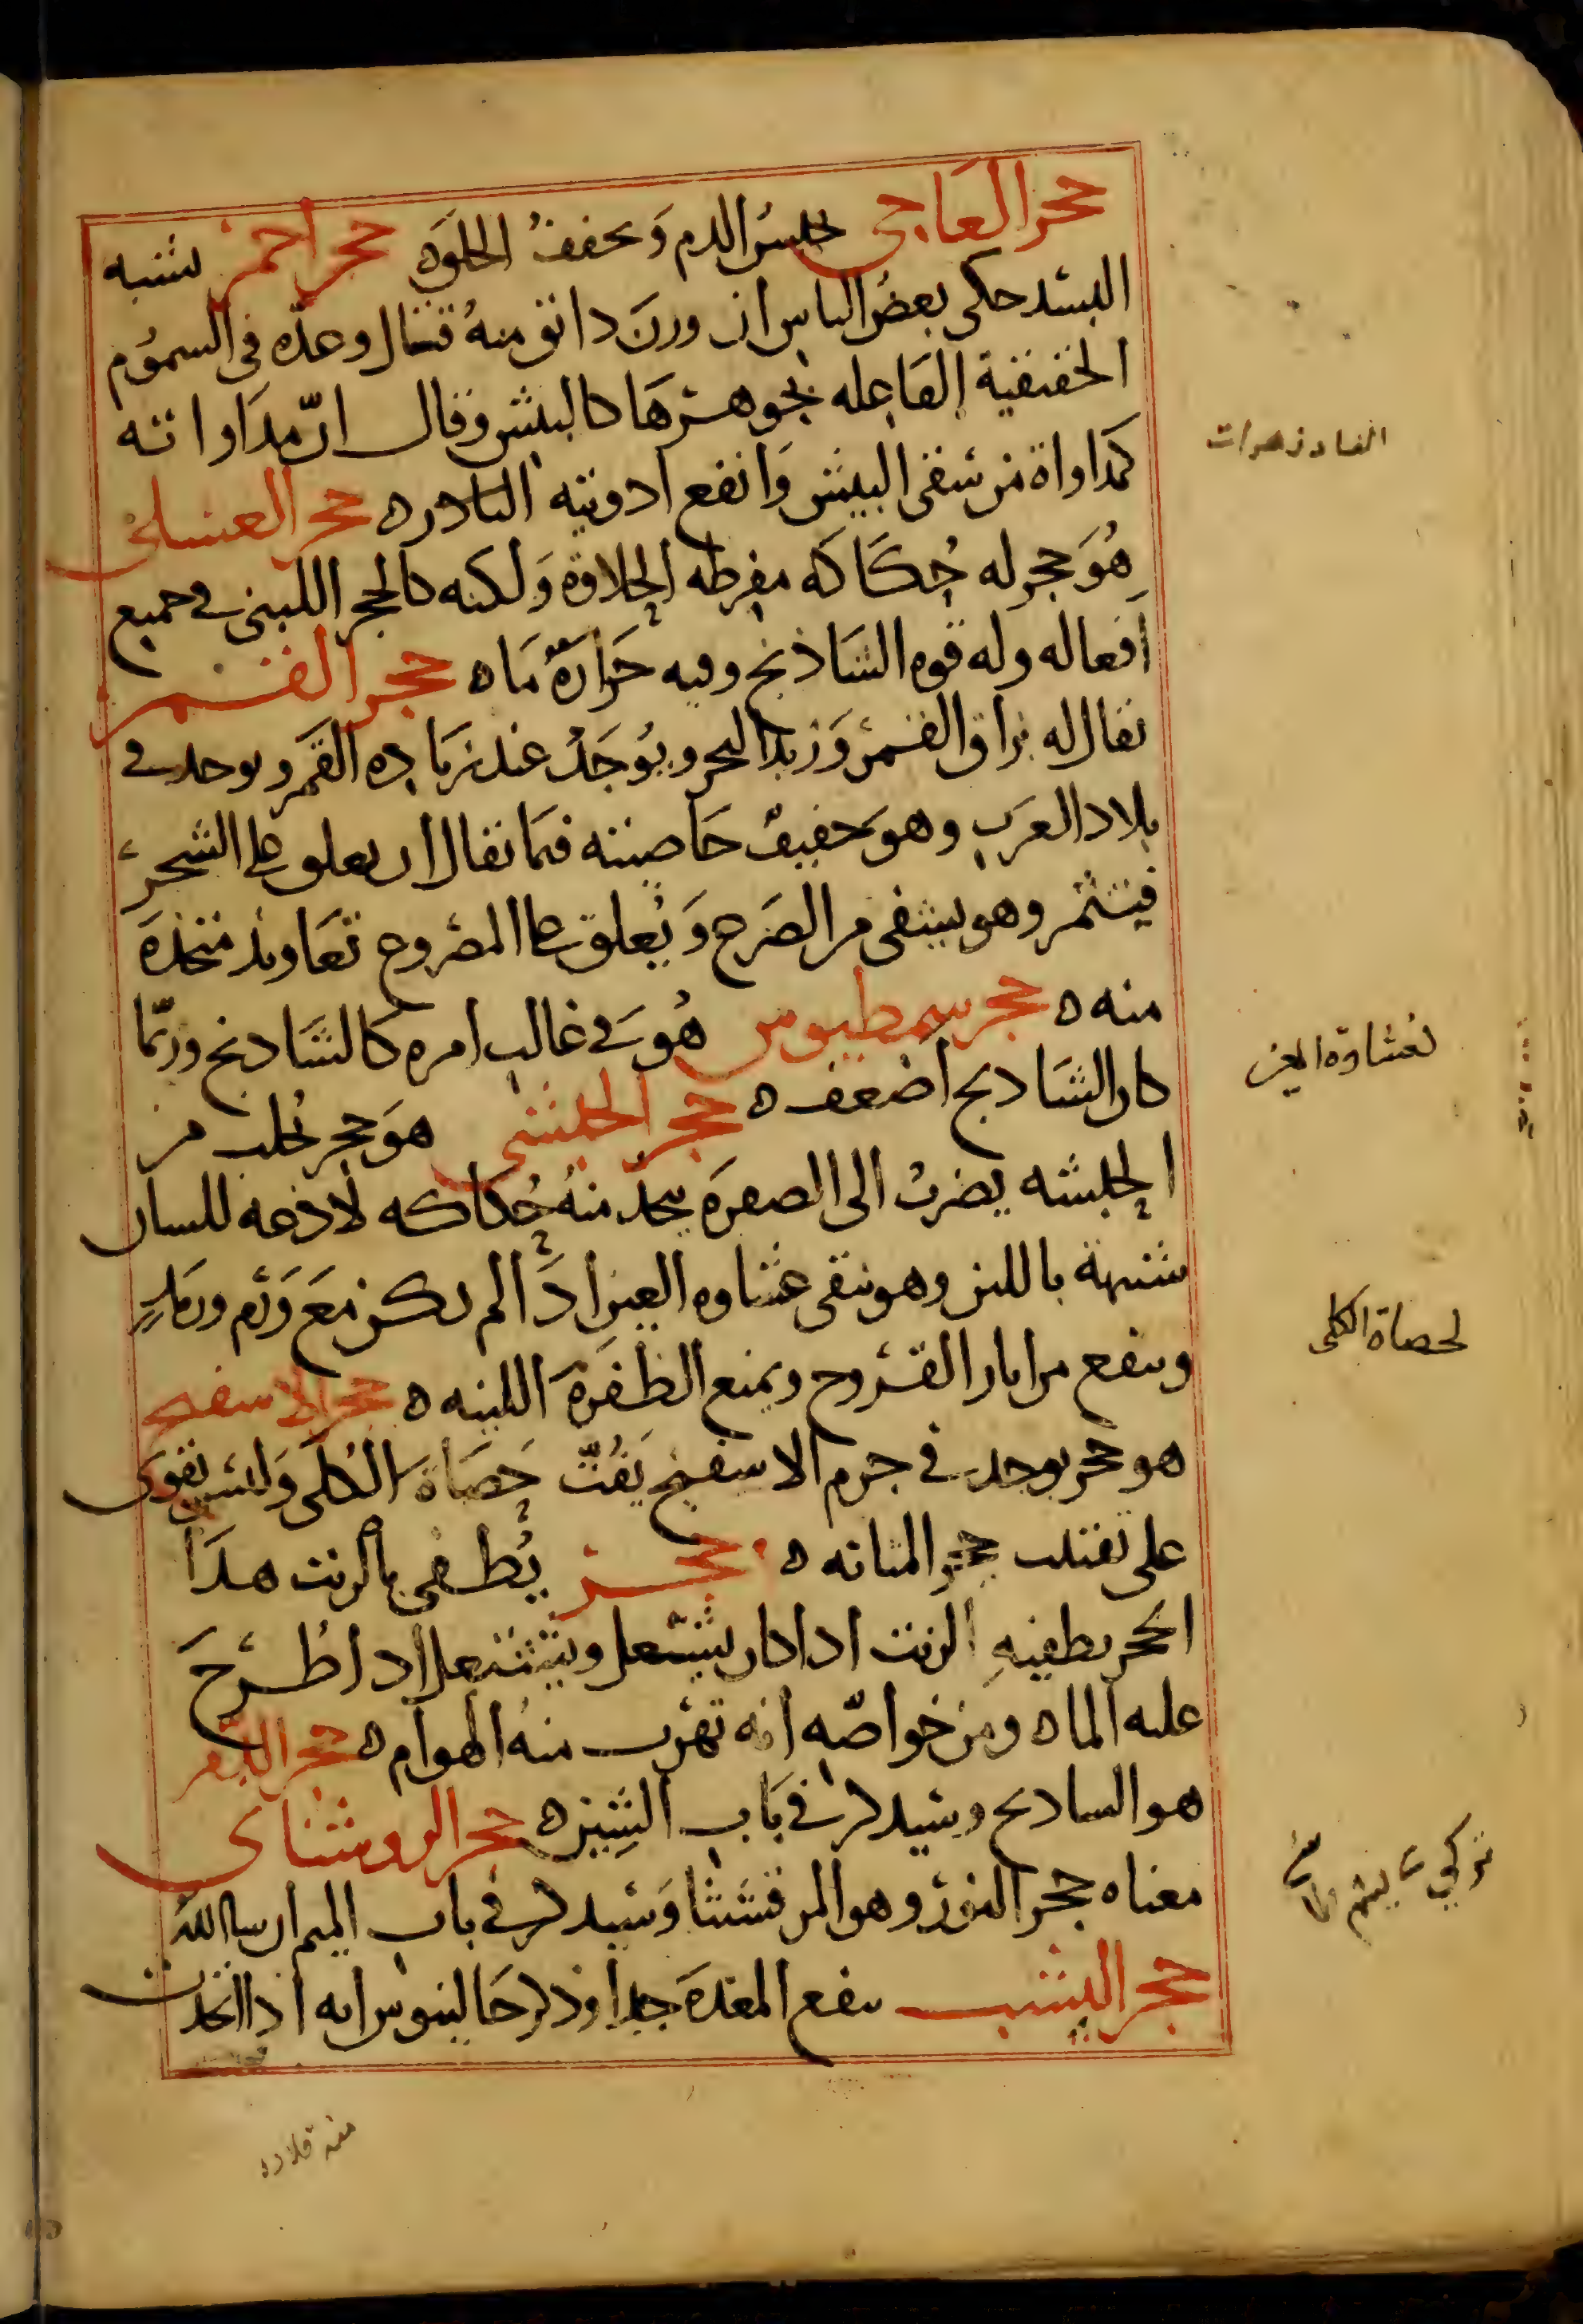 حجر العاجي يحبس الدم ويجفف الجلوه حجر احمر يشبه
البسد حكى بعض الناس ان وزن دانق منه قتال وعده في السموم
الحقيقية الفاعله بجوهرها كالبيش وقال ان مداواته
كمداواة من سقى البيش وانفع ادويته البادزهر ه حجر العسلي
هو حجر له حكاكه مفرطه الحلاوة ولكنه كالحجر اللبني في جميع
افعاله وله قوه الشاذنج وفيه حرارة ما ه حجر القمر
يقال له بزاق القمر وزبد البحر ويوجد عند زياده القمر ويوجد في
بلاد العرب وهو خفيف خاصيته فيما يقال ان يعلق على الشجر
فيثمر وهو يشفى من الصرع ويعلق على المصروع تعاويذ متخذه
منه ه حجر سمطيوس هو في غالب امره كالشاذنج وربما
كان الشاذنج اضعف ه حجر الحبشي هو حجر يجلب من
الحبشه يضرب الى الصفره يحد منه حكاكه لاذعه للسان
شبيهة باللبن وهو ينقى غشاوه العين اذا لم يكن مع ورم ورمد
وينفع من اثار القروح ويمنع الظفره اللينه ه حجر الاسفنج
هو حجر يوجد في جرم الاسفنج يفت حصاة الكلى وليس يقوى
على تفتيت حجر المثانه ه حجر يطفى بالزيت هذا
الحجر يطفيه الزيت اذا كان يشتعل ويشتعل اذا طرح
عليه الماء ه ومن خواصه انه تهرب منه الهوام ه حجر الدم
هو الشاذنج وسيذكر في باب الشين ه حجر الروشناي
معناه حجر النور وهو المرقشيثا وسيذكر في باب الميم ان شا الله
حجر اليشب ينفع المعده جدا وذكر جالينوس انه اذا اتخذت
الفادزهرات
لغشاوة العين
لحصاة الكلى
منه قلاده